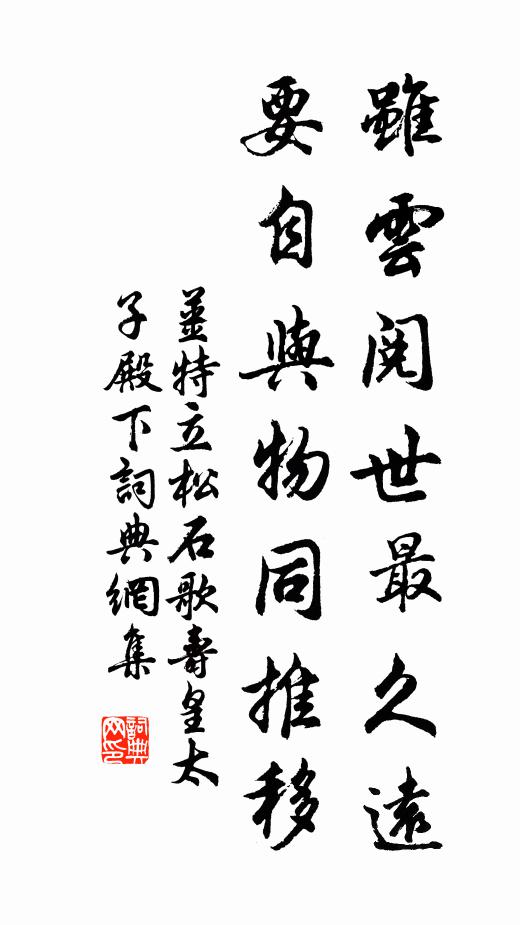 雖雲閱世最久遠
要自與物同推移
姜特立松石歌壽皇太
子殿下詞典網集
詞典
网印